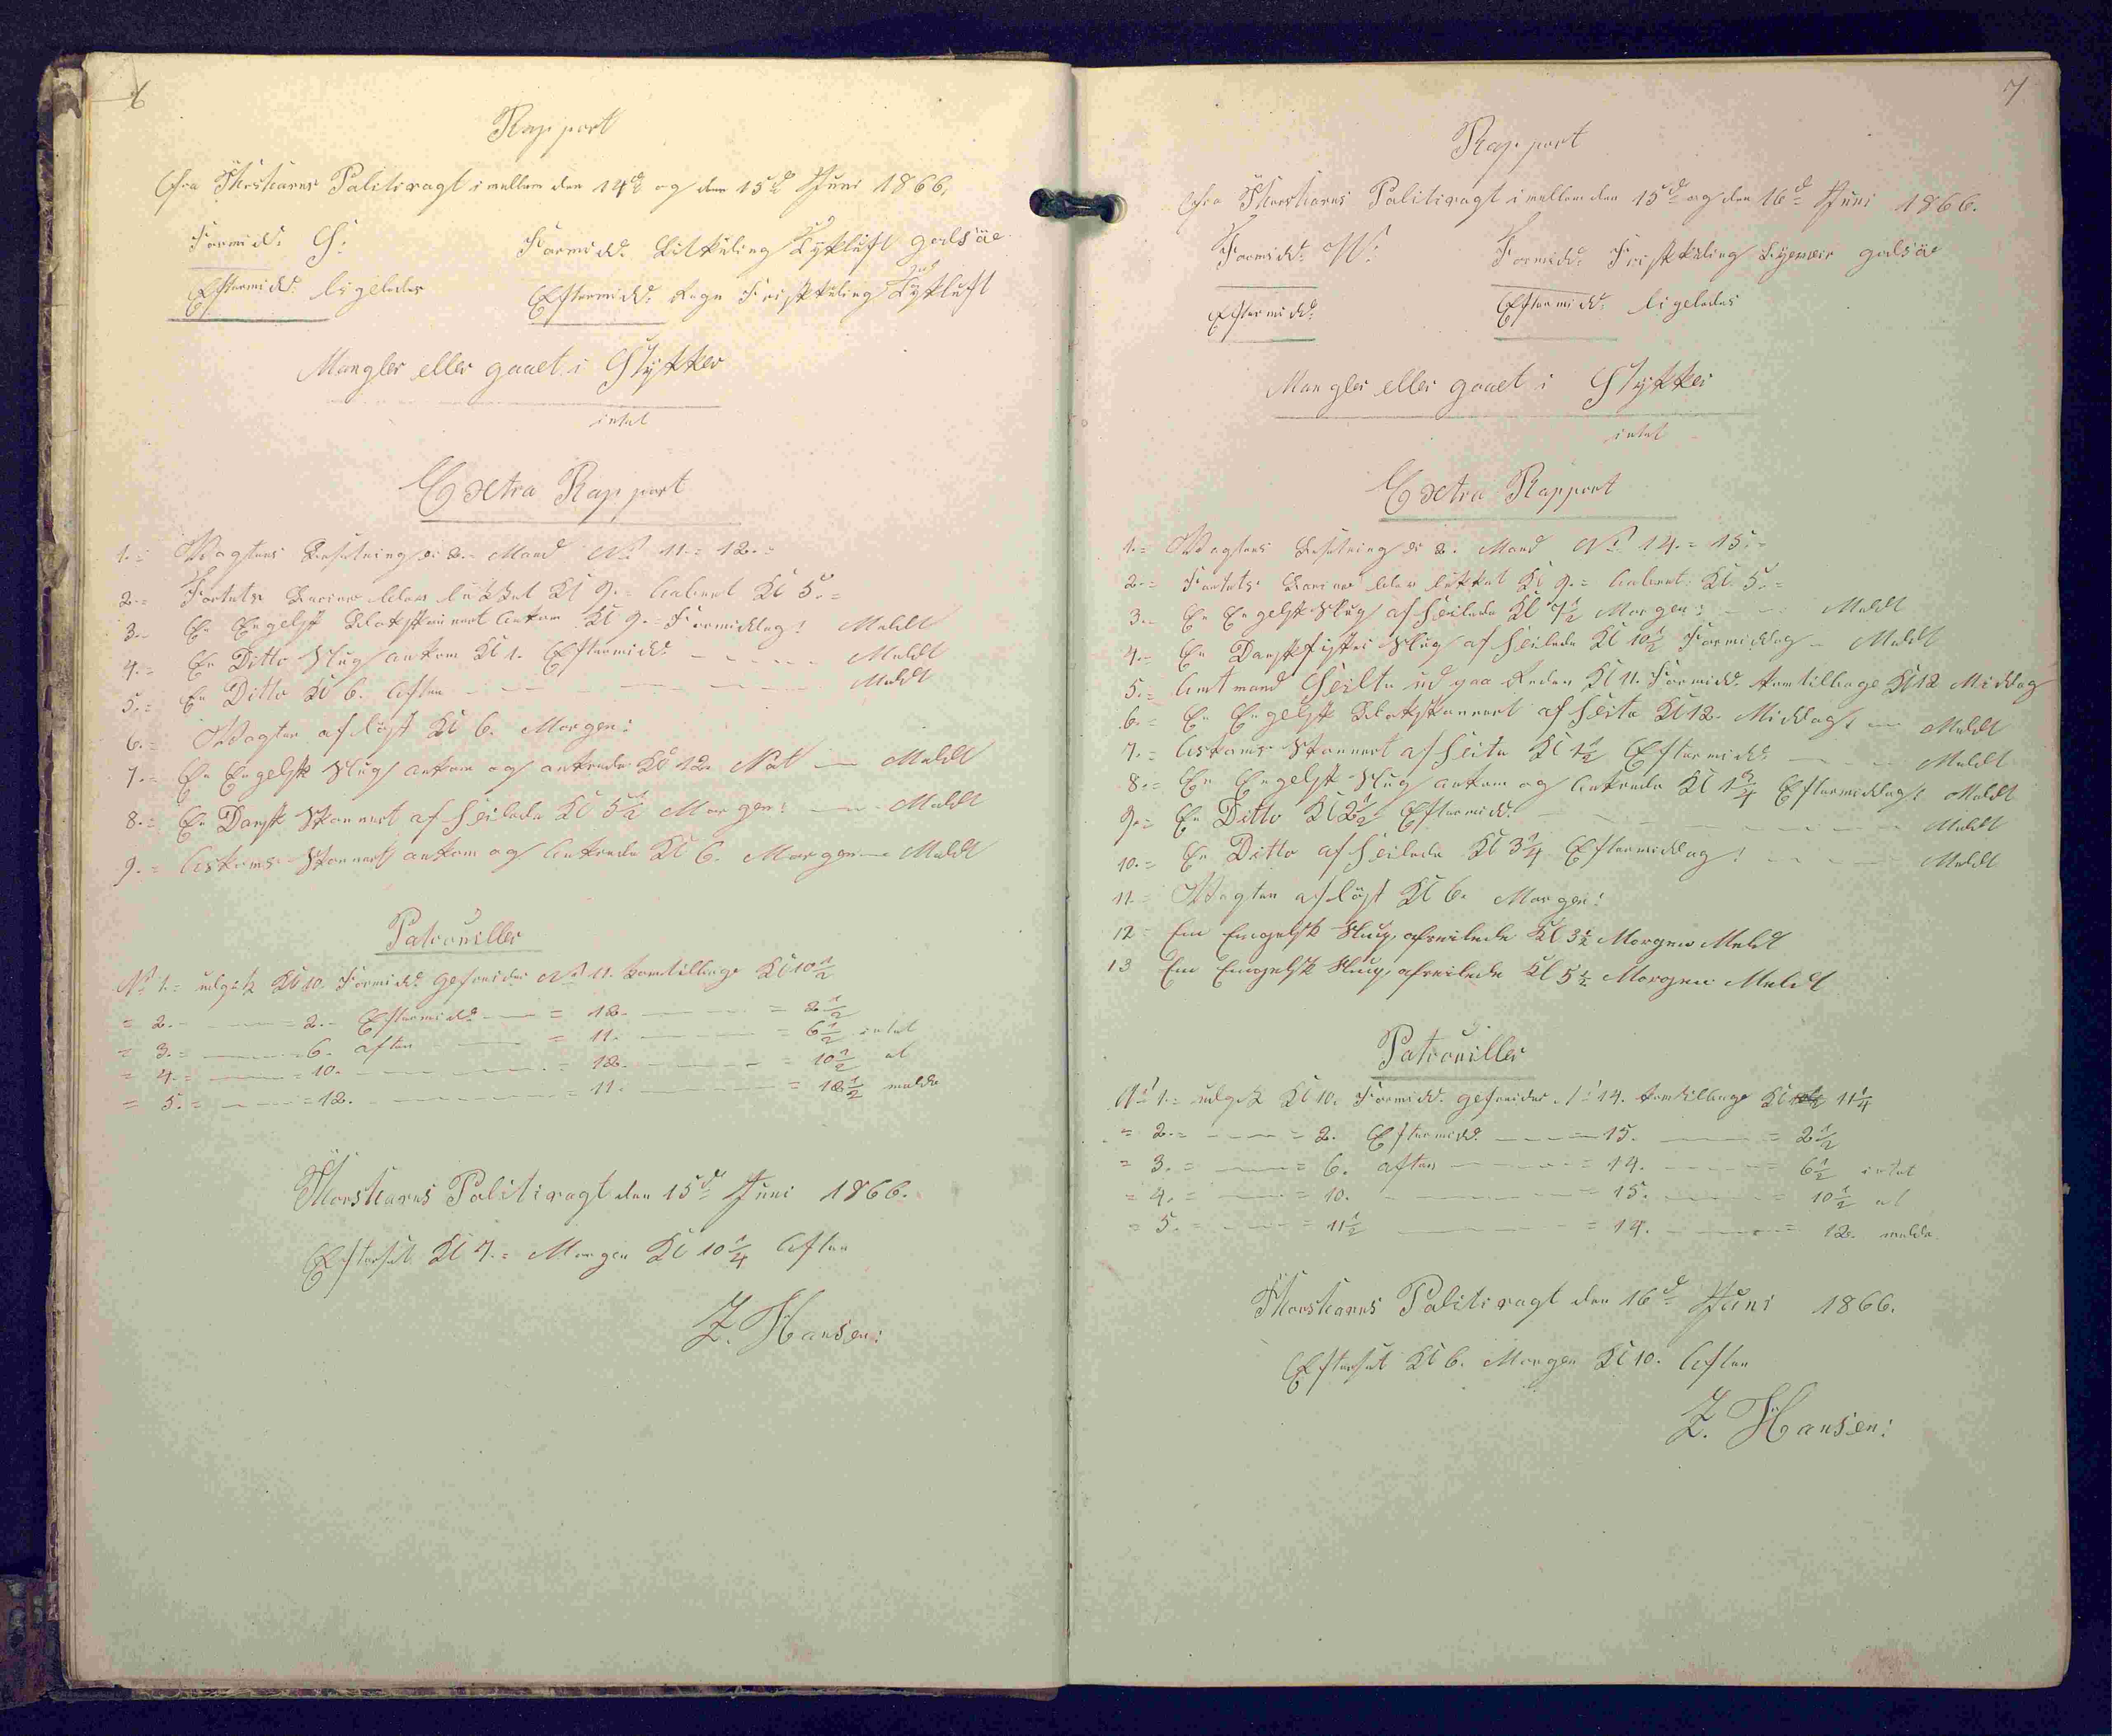 6
Rapport
Fra Thorshavns Politivagt imellem den 14de og den 15de Juni 1866.
Formidd: S:
Formidd: Litkuling Tÿkluft godsöe
Eftermidd: ligeledes
Eftermidd: Regn Friskkuling Tÿkluft
Mangler eller gaaet i Stÿkker
intet
Extra Rapport
1.= Vagtens Besetning er 2. Mand No 11.= 12.=
2.= Fortets Barriere blev lukket Kl 9.= Aabnet Kl 5.=
3.= En Engelsk Skonnert Ankom Kl 9.= Formiddag: Meldt
4.= En Ditto Slup ankom Kl 1. Eftermidd: Meldt
5.= En Ditto Kl 6. Aften Meldt
6.= Vagten aflöst Kl 6. Morgen:
7.= En Engelsk Slup ankom og ankrede Kl 12. Nat Meldt
8.= En Dansk Skonnert afseilede Kl 5½ Morgen: Meldt
9.= Skonnert ankom og Ankrede Kl 6. Morgen Meldt
Patrouiller
No 1.= udgik Kl 10. Formidd: gefreider No 11. kom tilbage Kl 10½
= 2. = 2. Eftermidd: = 12. = 2½
= 3. = 6. aften = 11. = 6½ intet
= 4. = 10. = 12. = 10½ at
= 5. = 12. = 11. = 12½ melde
Thorshavns Politivagt den 15de Juni 1866.
Efterset Kl 7.= Morgen Kl 10¼ Aften
Z. Hansen:
7
Rapport
Fra Thorshavns Politivagt imellem den 15de og den 16de Juni 1866.
Formidd: W:
Formidd: Friskkuling godsöe
Eftermidd:
Eftermidd: ligeledes
Mangler eller gaaet i Stÿkker
intet
Extra Rapport
1.= Vagtens Besetning er 2. Mand No 14.= 15.=
2.= Fortets Barriere blev lukket Kl 9.= Aabnet Kl. 5.=
3.= En Engelsk Slup afseilede Kl 7½ Morgen: Meldt
4.= En Dansk fisker Slup afseilede Kl 10½ Formiddag Meldt
5.= Amtmand Seilte ud paa Reden Kl 11. Formidd: kom tilbage Kl 12 Middag
6.= En Engelsk Skonnert afseilte Kl 12. Middag Meldt
7.= Skonnert afseilte Kl 1½ Eftermidd: Meldt
8.= En Engelsk Slup ankom og Ankrede Kl 1¾ Eftermiddag: Meldt
9.= En Ditto Kl 2½ Eftermidd: Meldt
10.= En Ditto afseilede Kl 3¼ Eftermiddag: Meldt
11.= Vagten aflöst Kl 6. Morgen:
12= Een Engelsk Slup, afseilede Kl 3½ Morgen Meldt
13 Een Engelsk Slup, afseilede Kl 5½ Morgen Meldt
Patrouiller
No 1.= udgik Kl 10. Formidd: gefreider No 14. kom tilbage Kl 11¼
= 2.= = 2. Eftermidd: = 15. = 2½
= 3. = = 6. aften = 14. = 6½ intet
= 4. = = 10. = 15. = 10½ at
= 5. = = 11½ = 14. = 12. melde
Thorshavns Politivagt den 16de Juni 1866.
Efterset Kl 6. Morgen Kl 10. Aften
Z. Hansen: